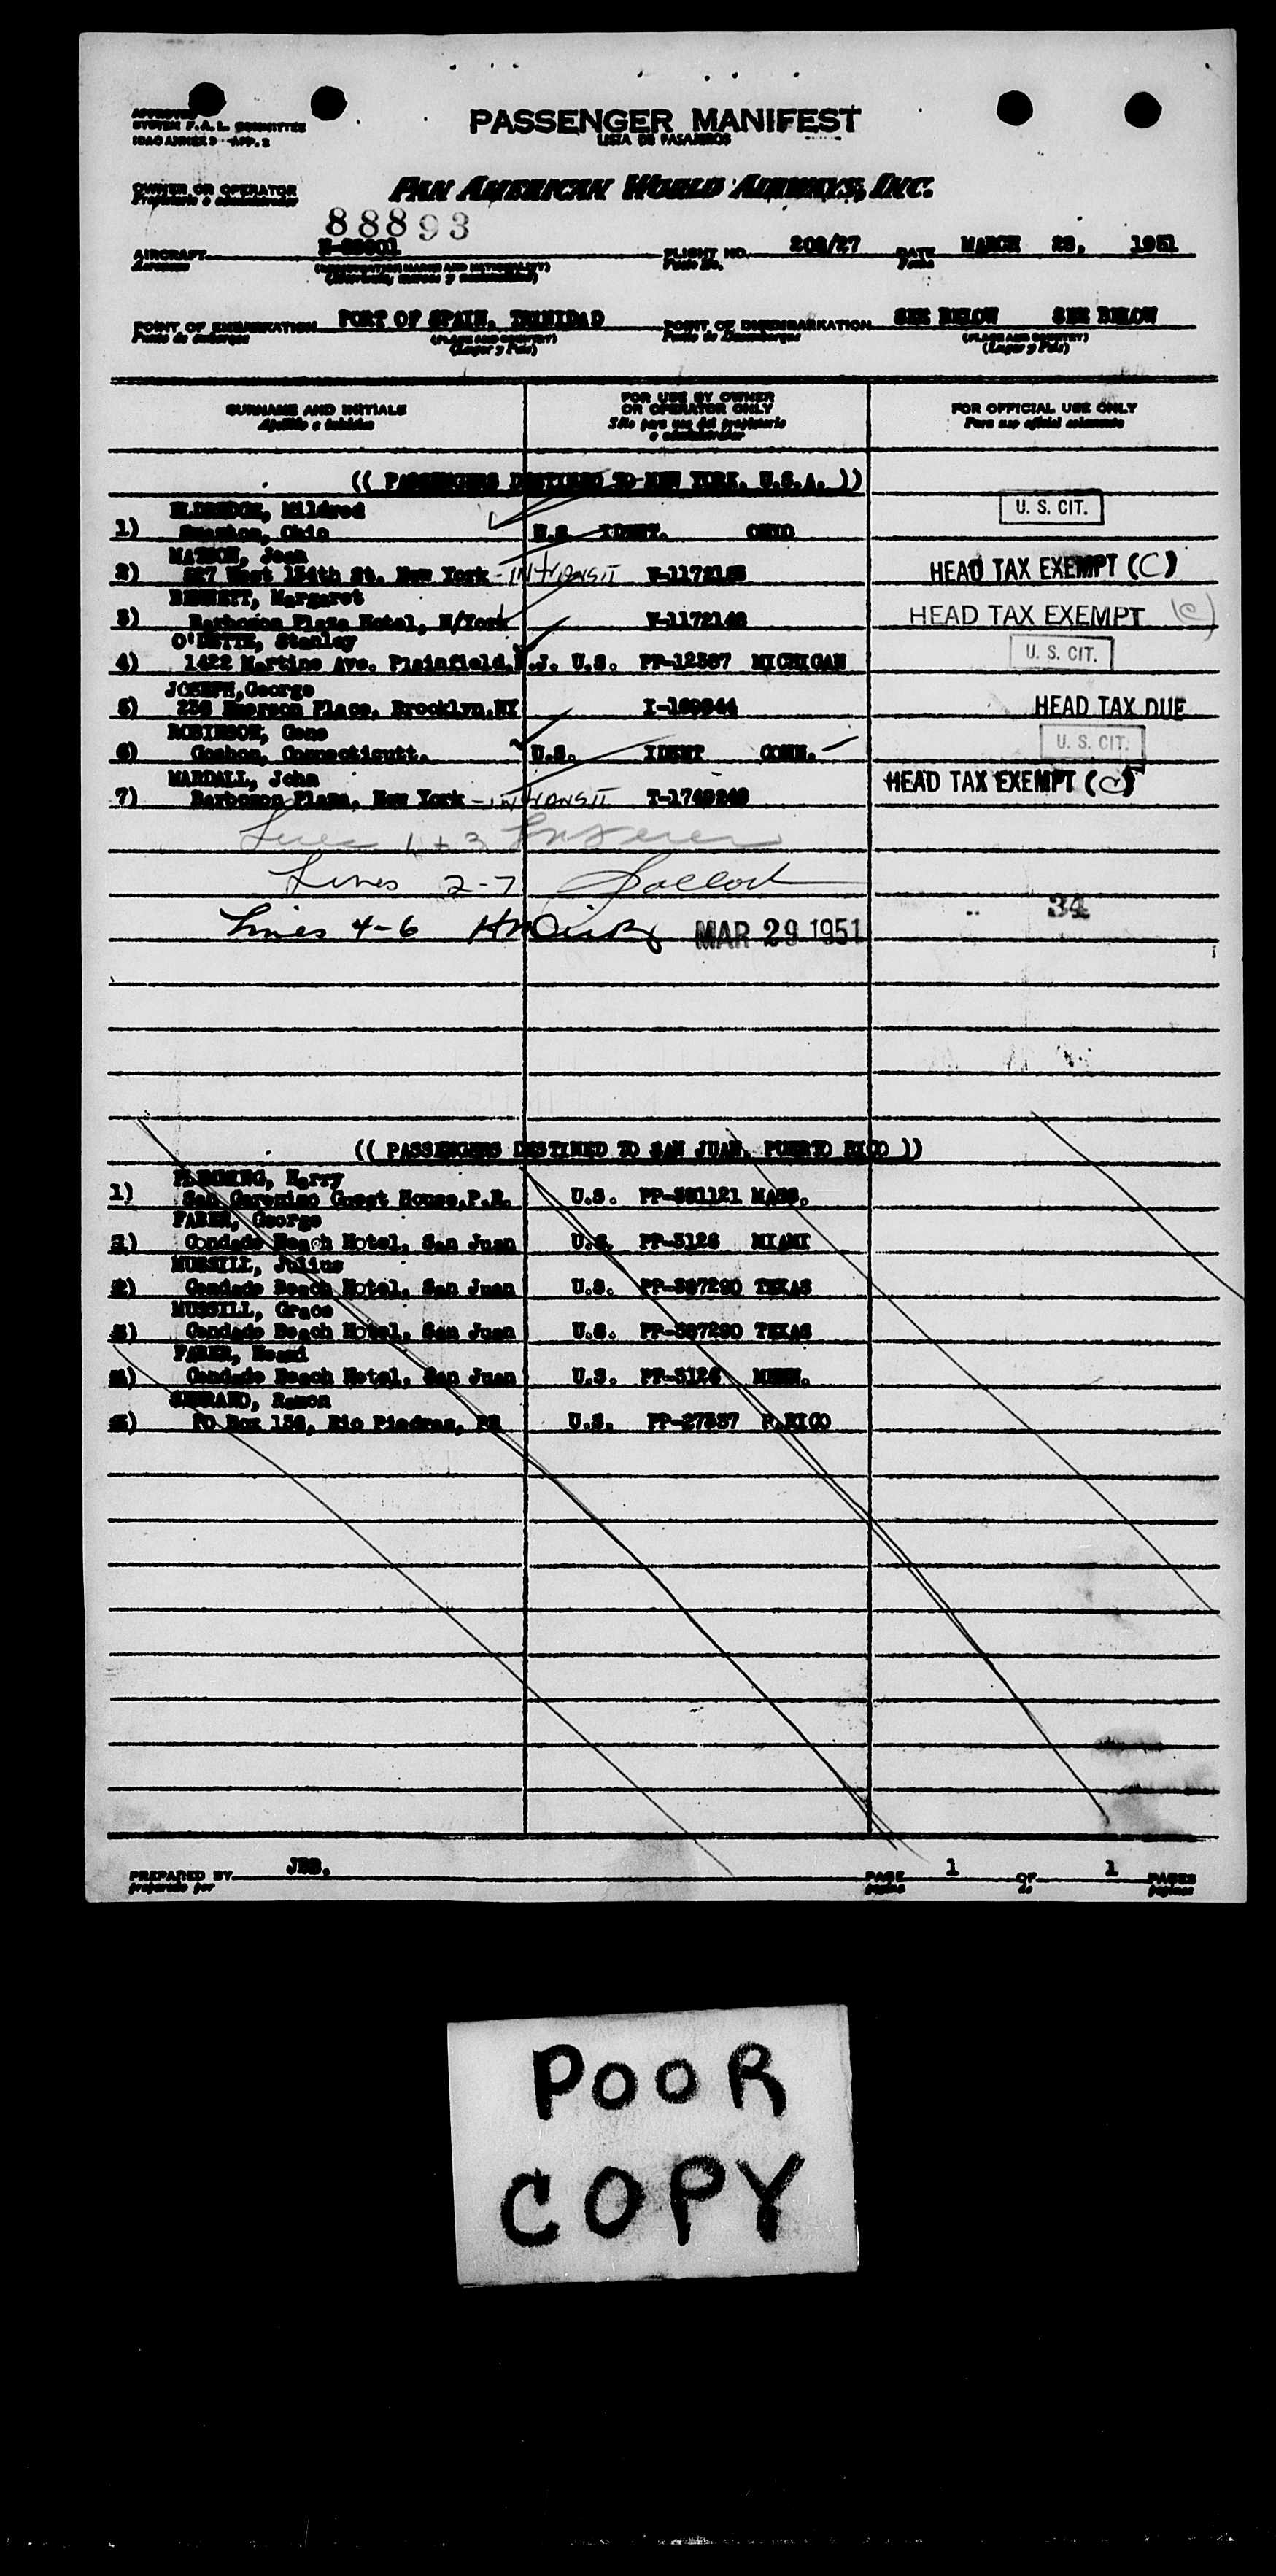 APPROVED
SYSTEM F.A.L. COMMITTEE
ICAO ANNEX 9 - APP. 2
PASSENGER MANIFEST
LISTA DE PASAJEROS
OWNER OR OPERATOR
Propietario o administrador
PAN AMERICAN WORLD AIRWAYS, INC.
88893
AIRCRAFT
Aeronave
FLIGHT NO. 202/27 DATE MARCH 28, 1951
Vuelo No. Fecha
POINT OF EMBARKATION PORT OF SPAIN, TRINIDAD POINT OF DISEMBARKATION SEE BELOW SEE BELOW
Punto de embarque (PLACE AND COUNTRY) Punto de Desembarque (PLACE AND COUNTRY)
(Lugar y País) (Lugar y País)
SURNAME AND INITIALS FOR USE BY OWNER OR OPERATOR ONLY FOR OFFICIAL USE ONLY
Apellido e iniciales Sólo para uso del propietario o administrador Para uso oficial solamente
(( PASSENGERS DESTINED TO NEW YORK, U.S.A. ))
ELDREDGE, Mildred
1) Ohio U.S. IDENT. OHIO U. S. CIT.
Jean
2) West 134th St. New York - INTRANSIT HEAD TAX EXEMPT (C)
BENNETT, Margaret
3) Barbozon Plaza Hotel, N/York HEAD TAX EXEMPT (C)
Stanley
4) 1422 Martine Ave. Plainfield, N.J. U.S. PP-12367 MICHIGAN U. S. CIT.
JOSEPH, George
5) 236 Emerson Place, Brocklyn, NY HEAD TAX DUE
ROBINSON, Gene
6) Goshon, Connecticutt. U.S. IDENT CONN. U. S. CIT.
MARDALL, John
7) Barbozon Plaza, New York - INTRANSIT T-1749248 HEAD TAX EXEMPT (C)
Lines 1 + 3
Lines 2-7
Lines 4-6 MAR 29 1951
34
(( PASSENGERS DESTINED TO SAN JUAN, PUERTO RICO ))
FLEMMING, Harry
1) San Geronimo Guest House, P.R. U.S. PP-331121 MASS.
FABER, George
Condado Beach Hotel, San Juan U.S. PP-3126 MIAMI
MUSSILL, Julius
2) Condado Beach Hotel, San Juan U.S. PP-387290 TEXAS
MUSSILL, Grace
Condado Beach Hotel, San Juan U.S. PP-387290 TEXAS
FABER, Neomi
Condado Beach Hotel, San Juan U.S. PP-3126 MINN.
SERRANO, Ramon
PO Box 156, Rio Piedras, PR U.S. PP-27357 P.RICO
PREPARED BY PAGE 1 OF 1 PAGES
preparado por página de páginas
POOR
COPY